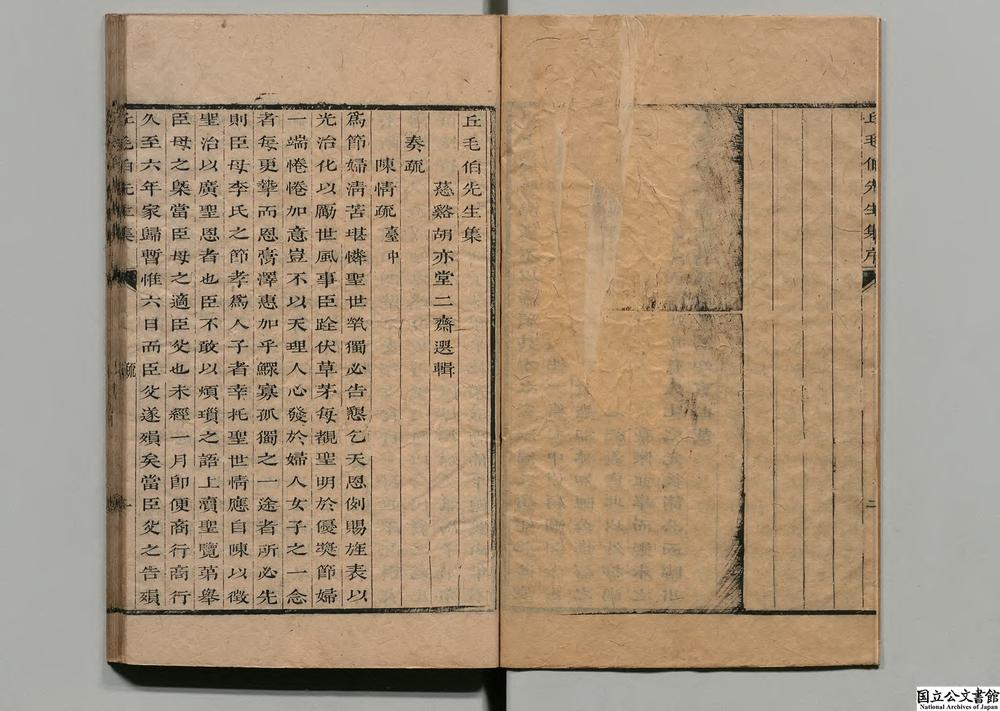 丘毛伯先生集序
二
丘毛伯先生集
慈谿胡亦堂二齋選輯
奏疏
陳情疏臺中
爲節婦清苦堪憐聖世煢獨必告懇乞天恩例賜旌表以
光治化以勵世風事臣跧伏草茅每覩聖明於優奬節婦
一端惓惓加意豈不以天理人心發於婦人女子之一念
者每更摯而恩膏澤惠加乎鰥寡孤獨之一途者所必先
則臣母李氏之節孝爲人子者幸托聖世情應自陳以徵
聖治以廣聖恩者也臣不敢以煩瑣之語上瀆聖覽第舉
臣母之槩當臣母之適臣父也未經一月卽便商行商行
久至六年家歸暫惟六日而臣父遂殞矣當臣父之告殞
丘毛伯先生集
疏
一
国立公文書館
National Archives of Japan